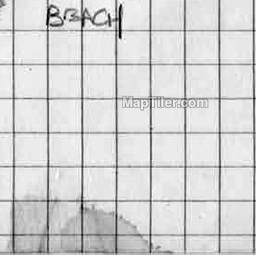 BBACH
MapTiler.com